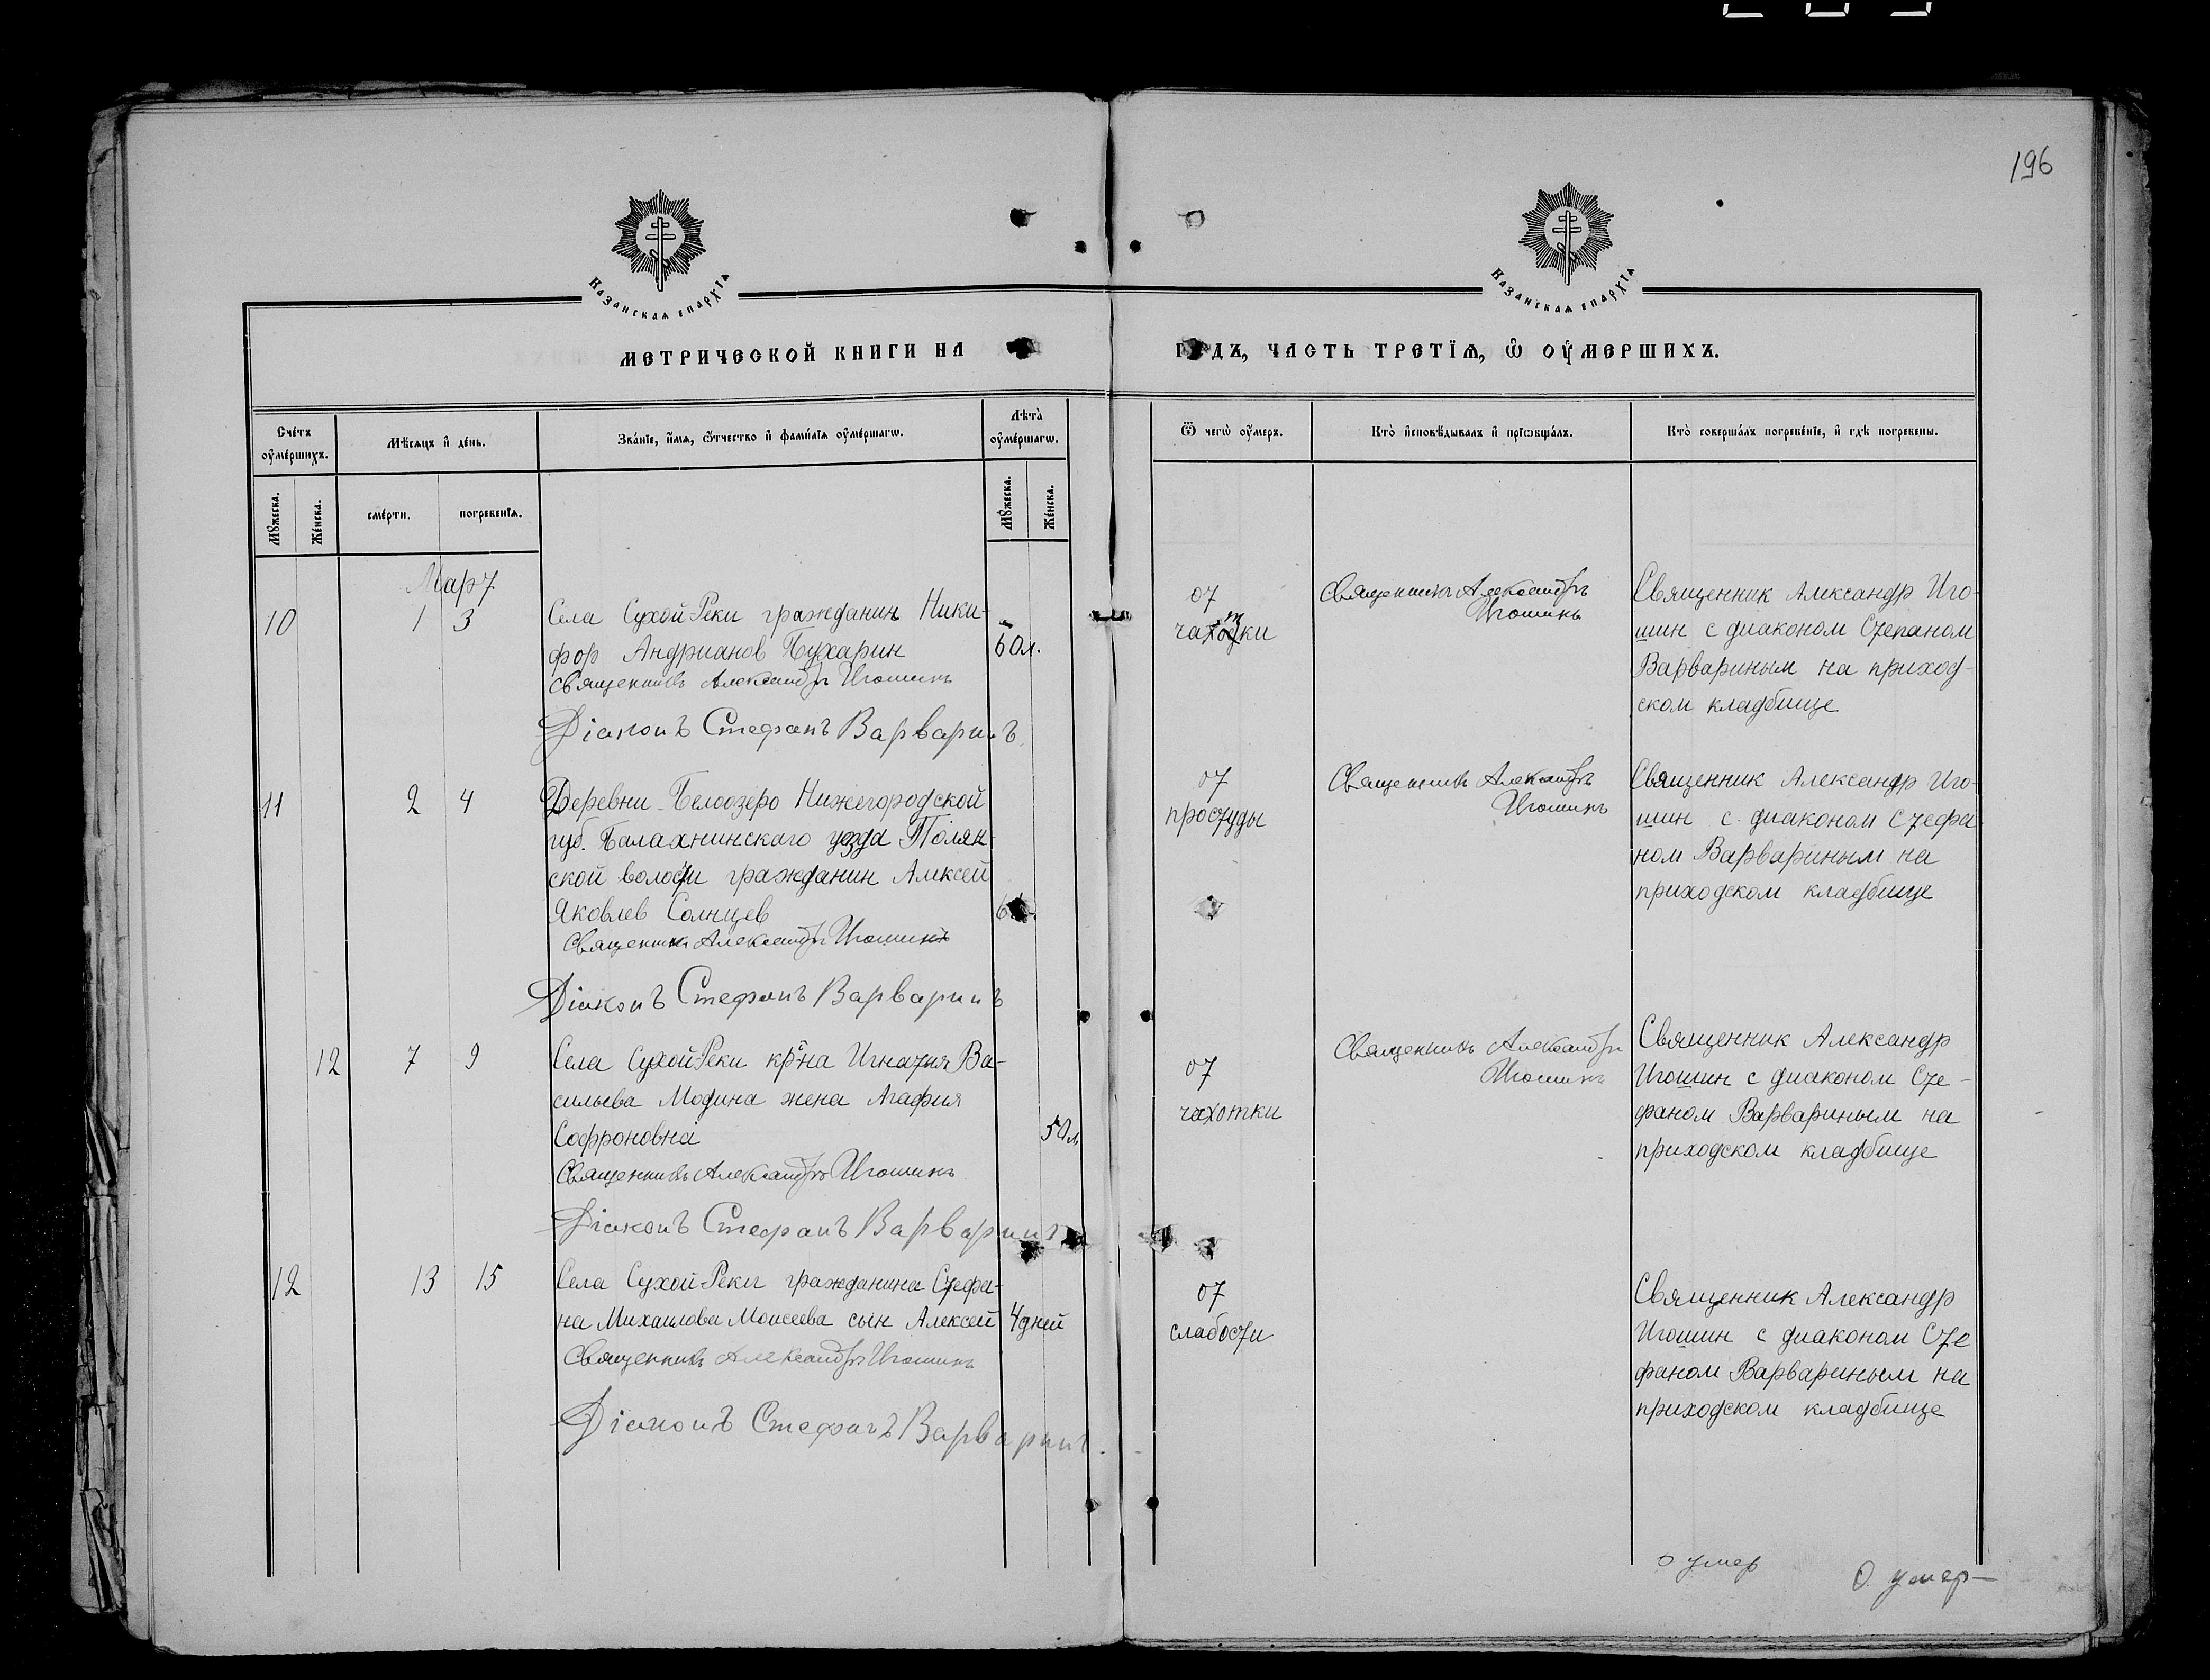 196
Казанская епархїѧ
Казанская епархїѧ
МЕТРИЧЕСКОЙ КНИГИ НА
ГОДЪ, ЧАСТЬ ТРЕТІѦ, Ѽ ОУМЕРШИХЪ.
Сче́тъ оумершихъ.
Мѣсяцъ и де́нь.
Зва́нїе, и́мѧ, ѻ́тчество и фами́лїѧ оуме́ршагѡ.
Лѣта̀ оуме́ршагѡ.
Ѿ чегѡ̀ оу́меръ.
Кто̀ исповѣ́дывалъ и прїѡбща́лъ.
Кто̀ соверша́лъ погребе́нїе, и гдѣ̀ погребены.
Мꙋжеска.
Же́нска.
сме́рти.
погребенїѧ.
Мꙋжеска.
Же́нска.
Март
10
1 3
Села Сухой Реки гражданин Ники-
фор Андрианов Бухарин
60 л.
священникъ Александръ Игошинъ
Діаконъ Стефанъ Варваринъ
от
чахотки
Священникъ Александръ
Игошинъ
Священник Александр Иго-
шин с диаконом Степаном
Варвариным на приход-
ском кладбище
11
2 4
Деревни Белоозеро Нижегородской
губ. Балахнинскаго уезда Полян-
ской волости гражданин Алексей
Яковлев Солнцев
Священникъ Александръ Игошинъ
Діаконъ Стефанъ Варваринъ
от
простуды
Священникъ Александръ
Игошинъ
Священник Александр Иго-
шин с диаконом Стефа
ном Варвариным на
приходском кладбище
12
7 9
Села Сухой Реки кр-на Игнатия Ва-
сильева Модина жена Агафия
Софроновна
50 л
Священникъ Александръ Игошинъ
Діаконъ Стефанъ Варваринъ
от
чахотки
Священникъ Александръ
Игошинъ
Священник Александр
Игошин с диаконом Сте-
фаном Варвариным на
приходском кладбище
12
13 15
Села Сухой Реки гражданина Стефа-
на Михаилова Моисеева сын Алексей
4 дней
Священникъ Александръ Игошинъ
Діаконъ Стефанъ Варваринъ.
от
слабости
Священник Александр
Игошин с диаконом Сте
фаном Варвариным на
приходском кладбище
о умер
О. умер-